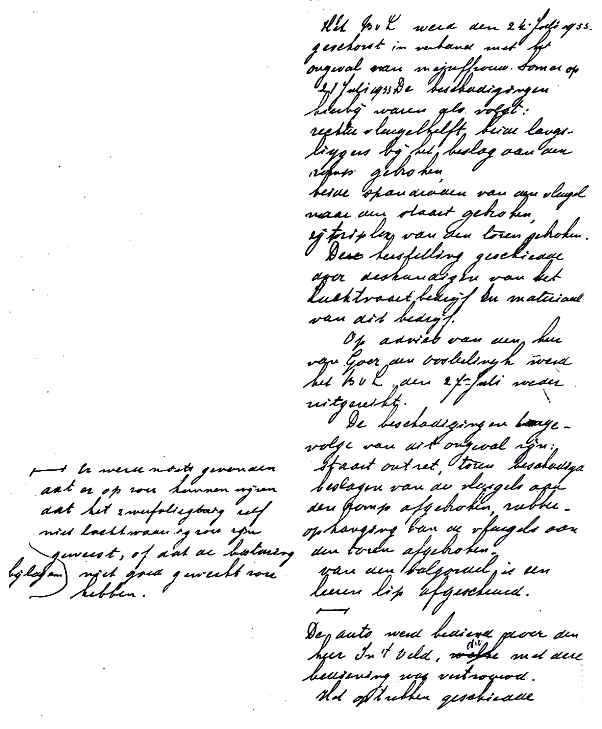 Het BvL werd den 24 Juli 1933
geschorst in verband met het
ongeval van mejuffrouw. Somer op
21 Juli 1933 De beschadigingen
hierbij waren als volgt:
rechter vleugelhelft, beide langs-
liggers bij het beslag aan den
romp gebroken,
beide spandraden van den vleugel
naar den staart gebroken,
van den toren gebroken.
Deze herstelling geschiedde
door deskundigen van het
luchtvaartbedrijf en materiaal
van dit bedrijf.
Op advies van den heer
van Goer den Oosterlingh werd
het BvL den 27 Juli weder
uitgereikt.
De beschadigingen tenge-
volge van dit ongeval zijn:
staart ontzet, toren beschadigd
beslagen van de vleugels aan
den romp afgebroken,
ophanging van de vleugels aan
den toren afgebroken,
van den valgordel is een
leeren lip afgescheurd.
Er werd niets gevonden
dat er op zou kunnen wijzen
dat het zweefvliegtuig zelf
niet luchtwaardig zou zijn
geweest, of dat de besturing
bijlagen niet goed gewerkt zou
hebben.
De auto werd bediend door den
heer In 't Veld, die met deze
bediening was vertrouwd.
Het optrekken geschiedde